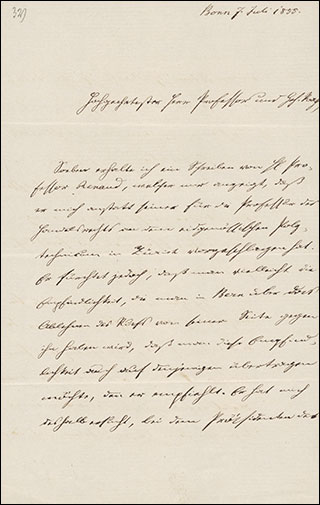 329
Bonn 7. Juli 1855.
Hochgeehrtester Herr Professor und
Soeben erhalte ich ein Schreiben von H. Pro-
fessor welcher mir anzeigt, daß
er mich anstatt seiner für die Professur des
Handelsrechts an dem eidgenössischen Poly-
technikum in Zürich vorgeschlagen hat.
Er fürchtet jedoch, daß man vielleicht die
Empfindlichkeit, die man in Bern über das
Ablehnen des Rufs von seiner Seite gegen
ihn haben wird, daß man diese Empfind-
lichkeit auch auf denjenigen übertragen
möchte, den er empfiehlt. Er hat mich
deshalb ersucht, bei dem Präsidenten des